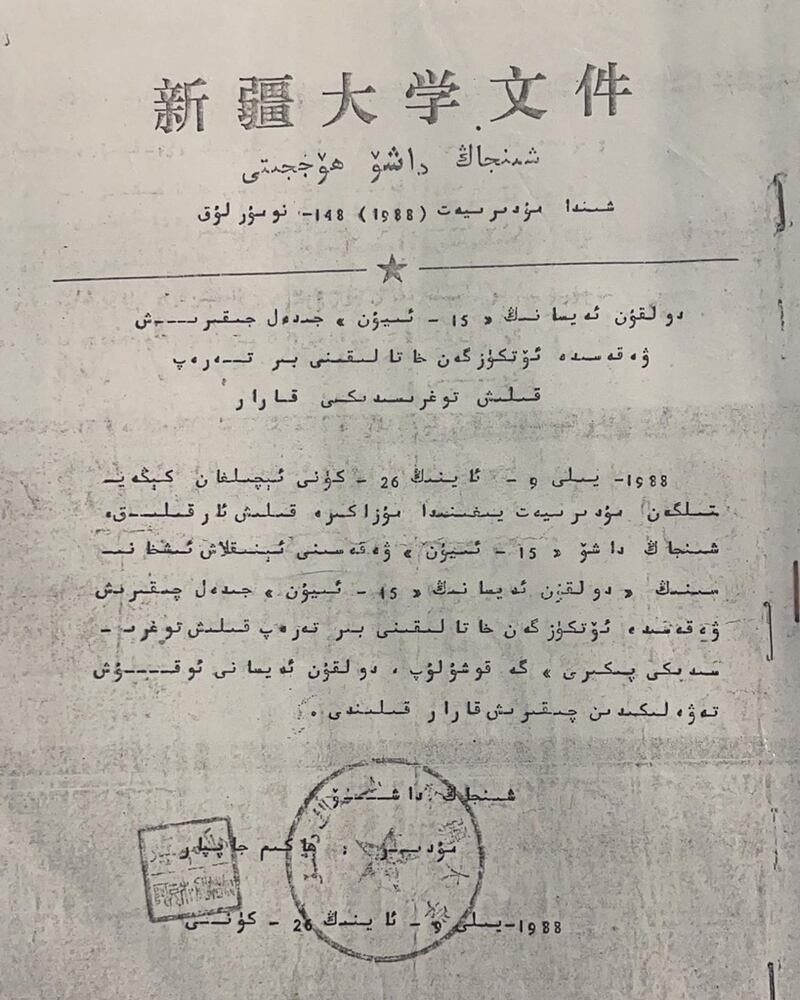 新疆大学文件
شىنجاڭ داشۆ ھۆججىتى
شىندا مۇدىرىيەت (1988) 148- نومۇرلۇق
دولقۇن ئەيسانىڭ « 15 - ئىيۇن » جىدەل چىقىرىش
ۋەقەسىدە ئۆتكۈزگەن خاتالىقىنى بىر تەرەپ
قىلىش توغرىسىدىكى قارار
1988- يىلى 9 - ئاينىڭ 26 - كۈنى ئېچىلغان كېڭەي-
تىلگەن مۇدىرىيەت يىغىنىدا مۇزاكىرە قىلىش ئارقىلىق،
شىنجاڭ داشۆ « 15 - ئىيۇن » ۋەقەسىنى ئېنىقلاش ئىشخانى-
سىنىڭ « دولقۇن ئەيسانىڭ « 15 - ئىيۇن » جىدەل چىقىرىش
ۋەقەسىدە ئۆتكۈزگەن خاتالىقىنى بىر تەرەپ قىلىش توغرى-
سىدىكى پىكىرى » گە قوشۇلۇپ ، دولقۇن ئەيسانى ئوقۇش
تەۋەلىكىدىن چىقىرىش قارار قىلىندى .
شىنجاڭ داشۆ
مۇدىرى : ھاكىم جاپپار
1988-يىلى 9 - ئاينىڭ 26 - كۈنى